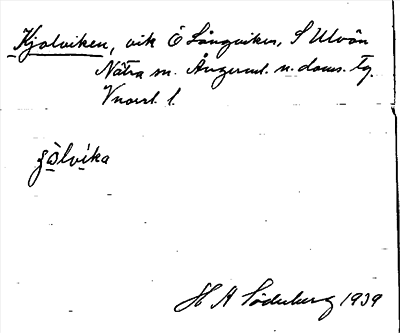 Kjolviken, vik Ö Långviken, S Ulvön
Nätra sn. Ångerml. n. doms. tg.
Vnorrl. l.
jo̱lvi̱ka
H A Söderberg 1939